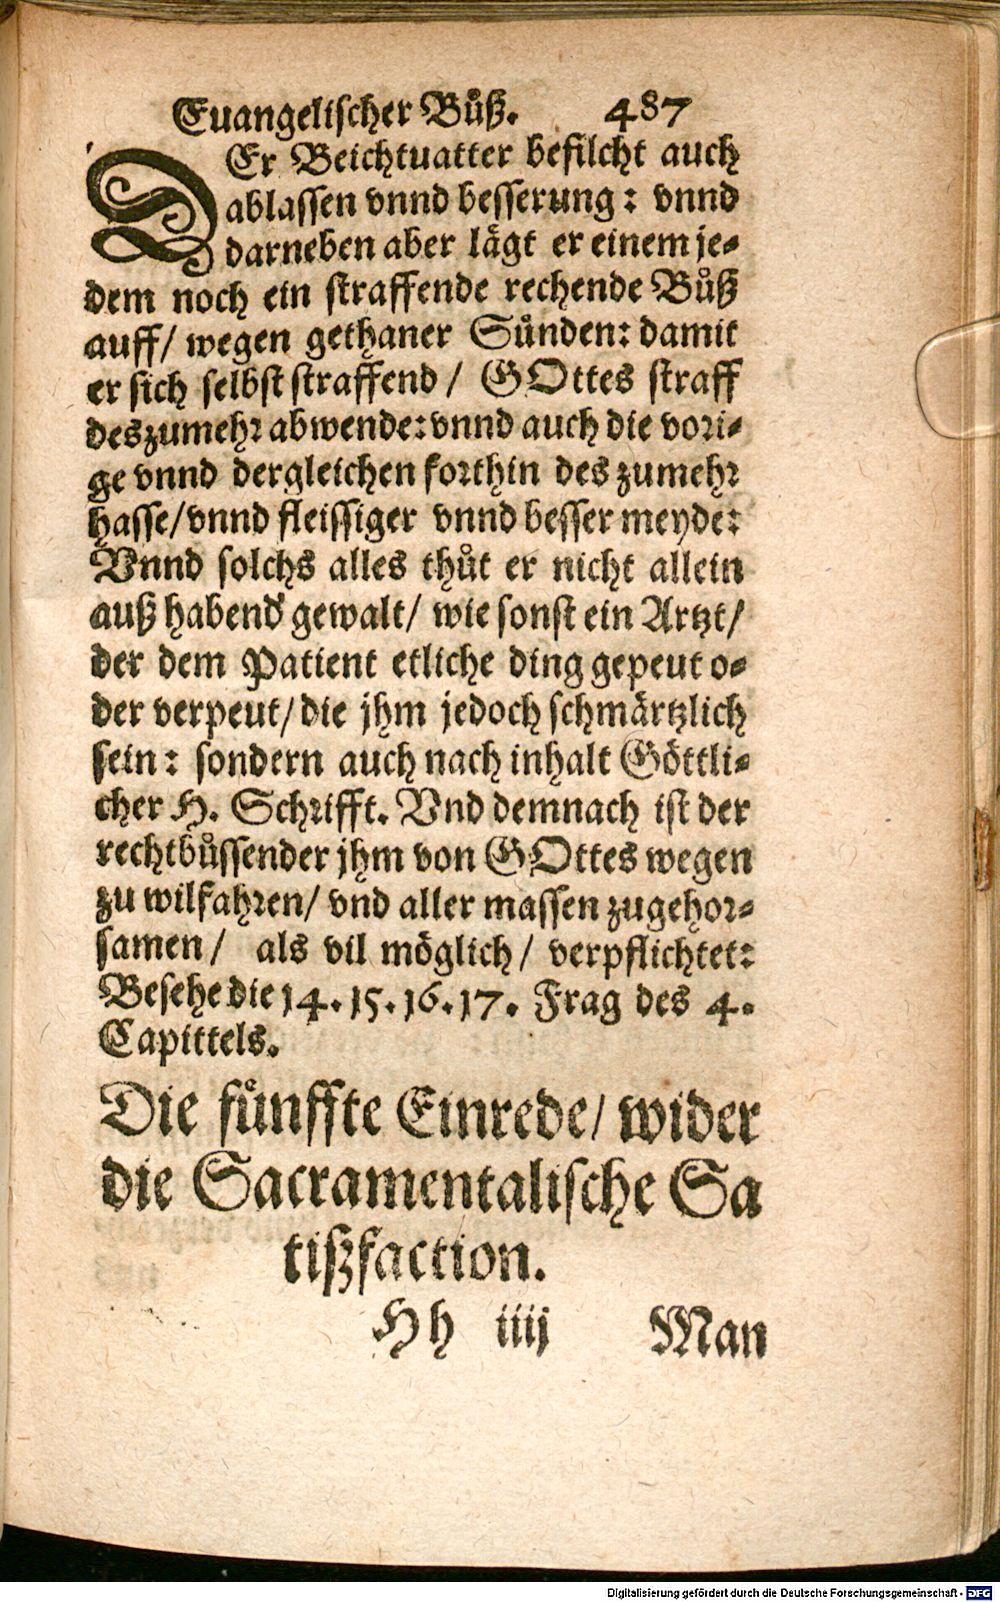 Euangelischer Bůß. 487
DEr Beichtuatter befilcht auch
ablassen vnnd besserung: vnnd
darneben aber lägt er einem je-
dem noch ein straffende rechende Bůß
auff/ wegen gethaner Sünden: damit
er sich selbst straffend/ GOttes straff
deszumehr abwende: vnnd auch die vori-
ge vnnd dergleichen forthin deszumehr
hasse/ vnnd fleissiger vnnd besser meyde:
Vnnd solchs alles thůt er nicht allein
auß habend' gewalt/ wie sonst ein Artzt/
der dem Patient etliche ding gepeut o-
der verpeut/ die jhm jedoch schmärtzlich
sein: sondern auch nach inhalt Göttli-
cher H. Schrifft. Vnd demnach ist der
rechtbůssender jhm von GOttes wegen
zu wilfahren/ vnd aller massen zugehor-
samen/ als vil möglich/ verpflichtet:
Besehe die 14. 15. 16. 17. Frag des 4.
Capittels.
Die fünffte Einrede/ wider
die Sacramentalische Sa
tißfaction.
Hh iiij Man
Digitalisierung gefördert durch die Deutsche Forschungsgemeinschaft - DFG